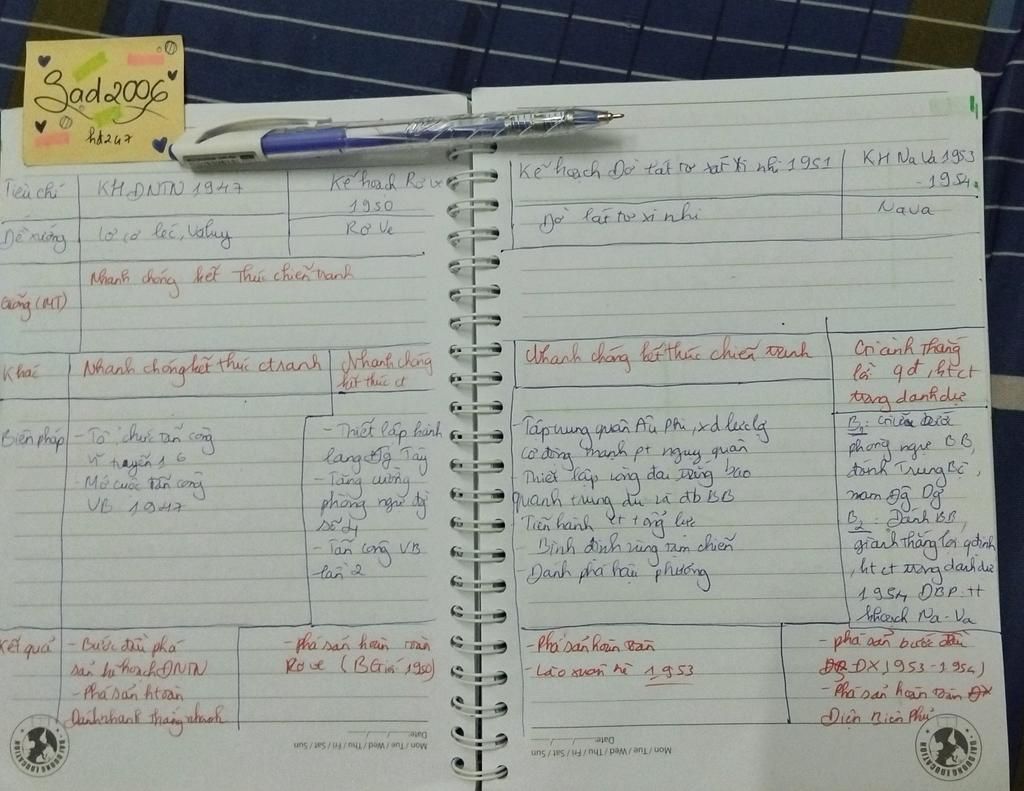 Sad2006
hđ247
Tiêu chí
KH ĐNTN 1947
Kế hoạch Rơ ve
1950
Đề xướng
Rơ Ve
Giống (MT)
Nhanh chóng kết thúc chiến tranh
Khác
Nhanh chóng kết thúc ctranh
Nhanh chóng
kết thúc ct
Biện pháp
- Tổ chức tấn công
- Mở cuộc tấn công
VB 1947
- Thiết lập hành
lang Đg Tây
- Tăng cường
phòng ngự đg
số 4
- Tấn công VB
lần 2
Kết quả
- Bước đầu phá
sản k hoạch ĐNTN
- Phá sản htoàn
Đánh nhanh thắng nhanh
- Phá sản hoàn toàn
Rơ ve (BGiới 1950)
Date:
Mon / Tue / Wed / Thu / Fri / Sat / Sun
Kế hoạch Đờ lát tơ xi nhi 1951
KH Na Va 1953
- 1954
Đờ lát tơ xi nhi
Nava
Nhanh chóng kết thúc chiến tranh
Giành thắng
lợi qđ, kt ct
trong danh dự
- Tập trung quân Âu Phi, xd lực lg
cơ động mạnh pt ngụy quân
- Thiết lập vòng đai trắng bao
quanh trung du và đb BB
- Tiến hành ct tổng lực
- Bình định vùng tạm chiến
- Đánh phá hậu phương
B1:
phòng ngự BB,
đánh Trung Bộ,
nam Đg Dg
B2: Đánh BB,
giành thắng lợi qđịnh
, kt ct trong danh dự
1954 ĐBP tt
khoạch Na-Va
- Phá sản hoàn toàn
- Lào xuân hè 1953
- phá sản bước đầu
ĐX (1953 - 1954)
- Phá sản hoàn toàn
Điện Biên Phủ
Date:
Mon / Tue / Wed / Thu / Fri / Sat / Sun
HAI DUONG EDUCATION
HAI DUONG EDUCATION